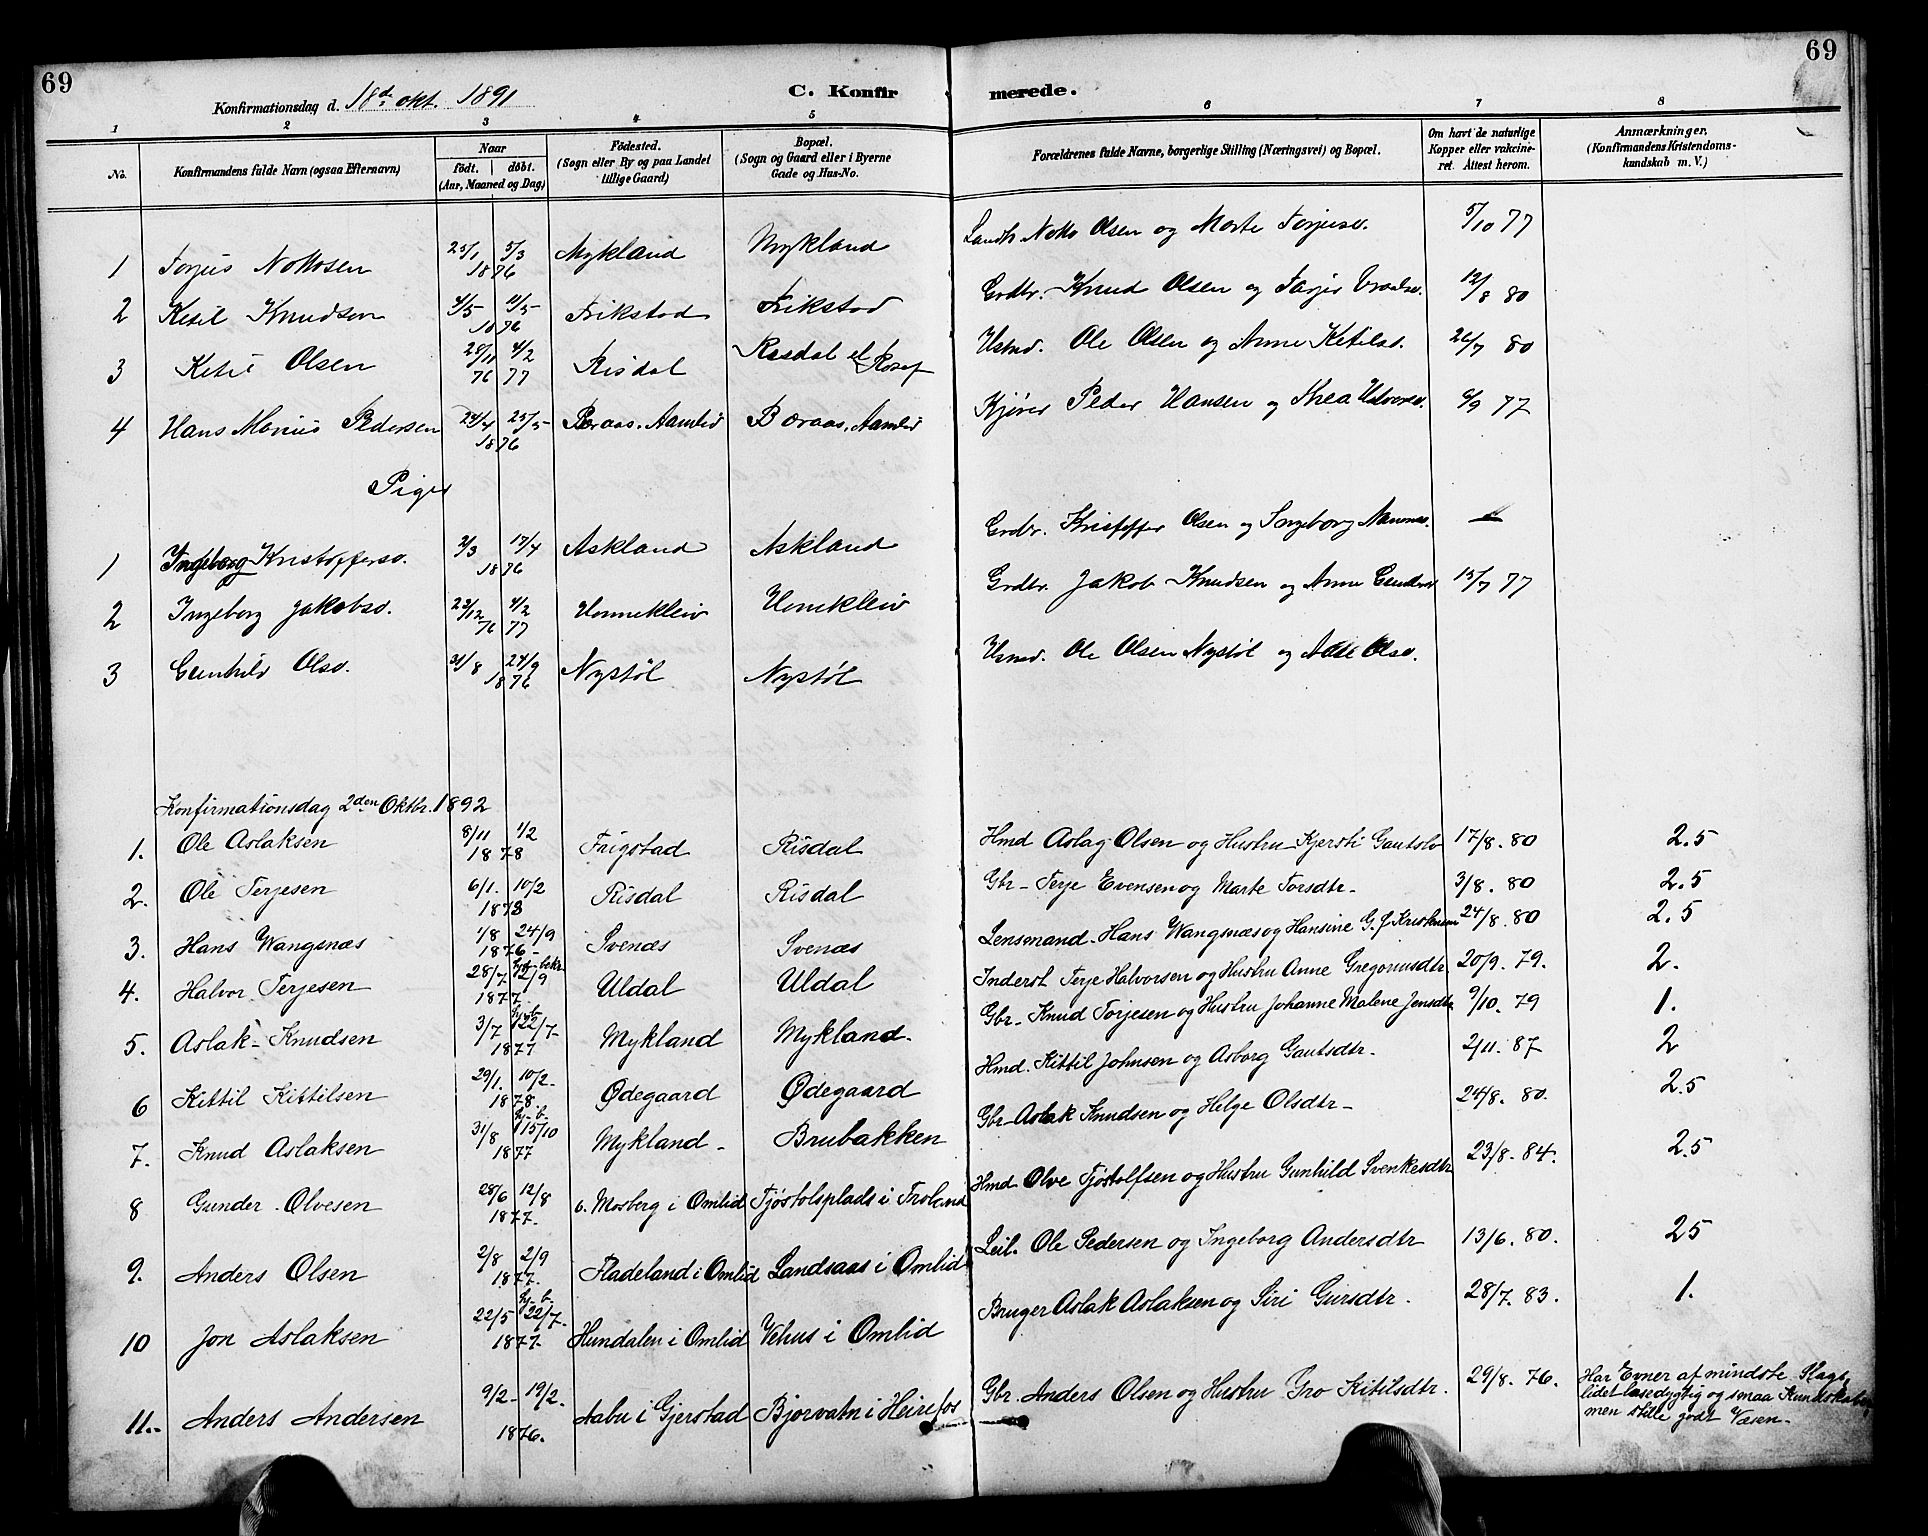 69
69
Konfirmationsdag d. 18de okt. 1891
C. Konfir
merede.
1 2 3 4 5 6 7 8
No.
Konfirmandens fulde Navn (ogsaa Efternavn)
Naar
født. | døbt.
(Aar, Maaned og Dag)
Fødested.
(Sogn eller By og paa Landet
tillige Gaard)
Bopæl.
(Sogn og Gaard eller i Byerne
Gade og Hus-No.
Forældrenes fulde Navne, borgerlige Stilling (Næringsvei) og Bopæl.
Om havt de naturlige
Kopper eller vakcine-
ret. Attest herom.
Anmærkninger.
(Konfirmandens Kristendoms-
kundskab m. V.)
1 Torjus Nottosen 25/1 5/3 1876 Mykland Mykland Notto Olsen og Marte Torjusd. 5/10 77
2 Ketil Knudsen 4/5 11/5 1876 Frikstad Frikstad Grdbr. Knud Olsen og 12/8 80
3 Ketil Olsen 4/2 76 77 Risdal Ole Olsen og Anne Ketilsd. 80
4 Hans Marius Pedersen 1876 Baraas, Aamlid Baraas, Aamlid Peder Hansen og Thea 6/9 77
Piger
1 Ingeborg Kristoffersd. 2/3 17/4 1876 Askland Askland Grdbr. Kristoffer Olsen og Ingeborg
2 Ingeborg Jakobsd. 4/2 76 77 Honnekleiv Honnekleiv Grdbr. Jakob Knudsen og Anne 77
3 Gunhild Olsd. 31/8 24/9 1876 Nystøl Nystøl Ole Olsen Nystøl og Olsd.
Konfirmationsdag 2den Oktbr. 1892
1. Ole Aslaksen 8/11 1/2 1878 Frigstad Risdal Hmd Aslag Olsen og Hustru Kjersti 17/8. 80 2.5
2. Ole Terjesen 6/1. 10/2 1878 Risdal Risdal Gbr - Terje Evensen og Marte Torsdtr - 3/8. 80 2.5
3. Hans Wangsnæs 1/8 24/9 1876 - Svenæs Svenæs Lensmand. Hans Wangsnæs og Hansine G. J. 24/8. 80 2.5
4. Halvor Terjesen 28/7 2/9 1877. Uldal Uldal Inderst Terje Halvorsen og Hustru Anne Gregoriusdtr 20/9. 79. 2.
5. Aslak - Knudsen 3/7 22/7 - 1877 Mykland Mykland - Gbr - Knud Torjesen og Hustru Johanne Malene Jensdtr 9/10. 79 1.
6 Kittil Kittilsen 29/1. 10/2 - 1878 Ødegaard Ødegaard Hmd. Kittil Johnsen og Asborg Gautsdtr - 2/11. 87 2
7. Knud Aslaksen 31/8 15/10 1877 Mykland - Brubakken Gbr - Aslak Knudsen og Helge Olsdtr - 24/8. 80. 2.5
8 Gunder Olvesen 28/6 12/8 1877 - Mosberg i Omlid Tjøstolsplads i Froland Hmd Olve Tjøstolfsen og Hustru Gunhild Svenkesdtr 23/8. 84. 2.5
9. Anders Olsen 2/8 2/9 1877. Fladeland i Omlid Landsaas i Omlid Leil. Ole Pedersen og Ingeborg Andersdtr 13/6. 80. 25
10 Jon Aslaksen 22/5 22/7 - 1877 - Hundalen i Omlid Vehus i Omlid Bruger Aslak Aslaksen og Siri Gursdtr. 28/7. 83. 1.
11. Anders Andersen 9/2 - 19/2. 1876. Aabu i Gjerstad Bjorvatn i Heirefos Gbr. Anders Olsen og Hustru Gro Kitilsdtr. 29/8. 76. Har Evner af mindste Slags,
lidet læsedygtig og smaa Kundskaber
men stille godt Væsen -